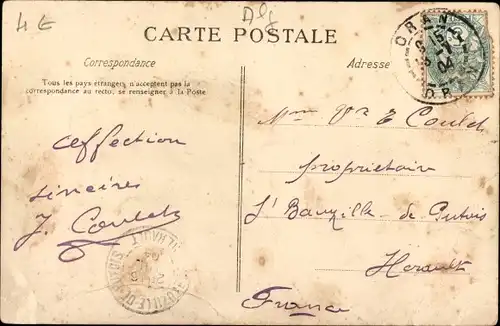 4 E
Alg
CARTE POSTALE
Correspondance
Adresse
Tous les pays étrangers n'acceptent pas la
correspondance au recto, se renseigner à la Poste
ORAN
04
affection
sincères
J. Coulet
Mme Vve E Coulet
propriétaire
St Bauzille - de Putois
Herault
France
HERAULT